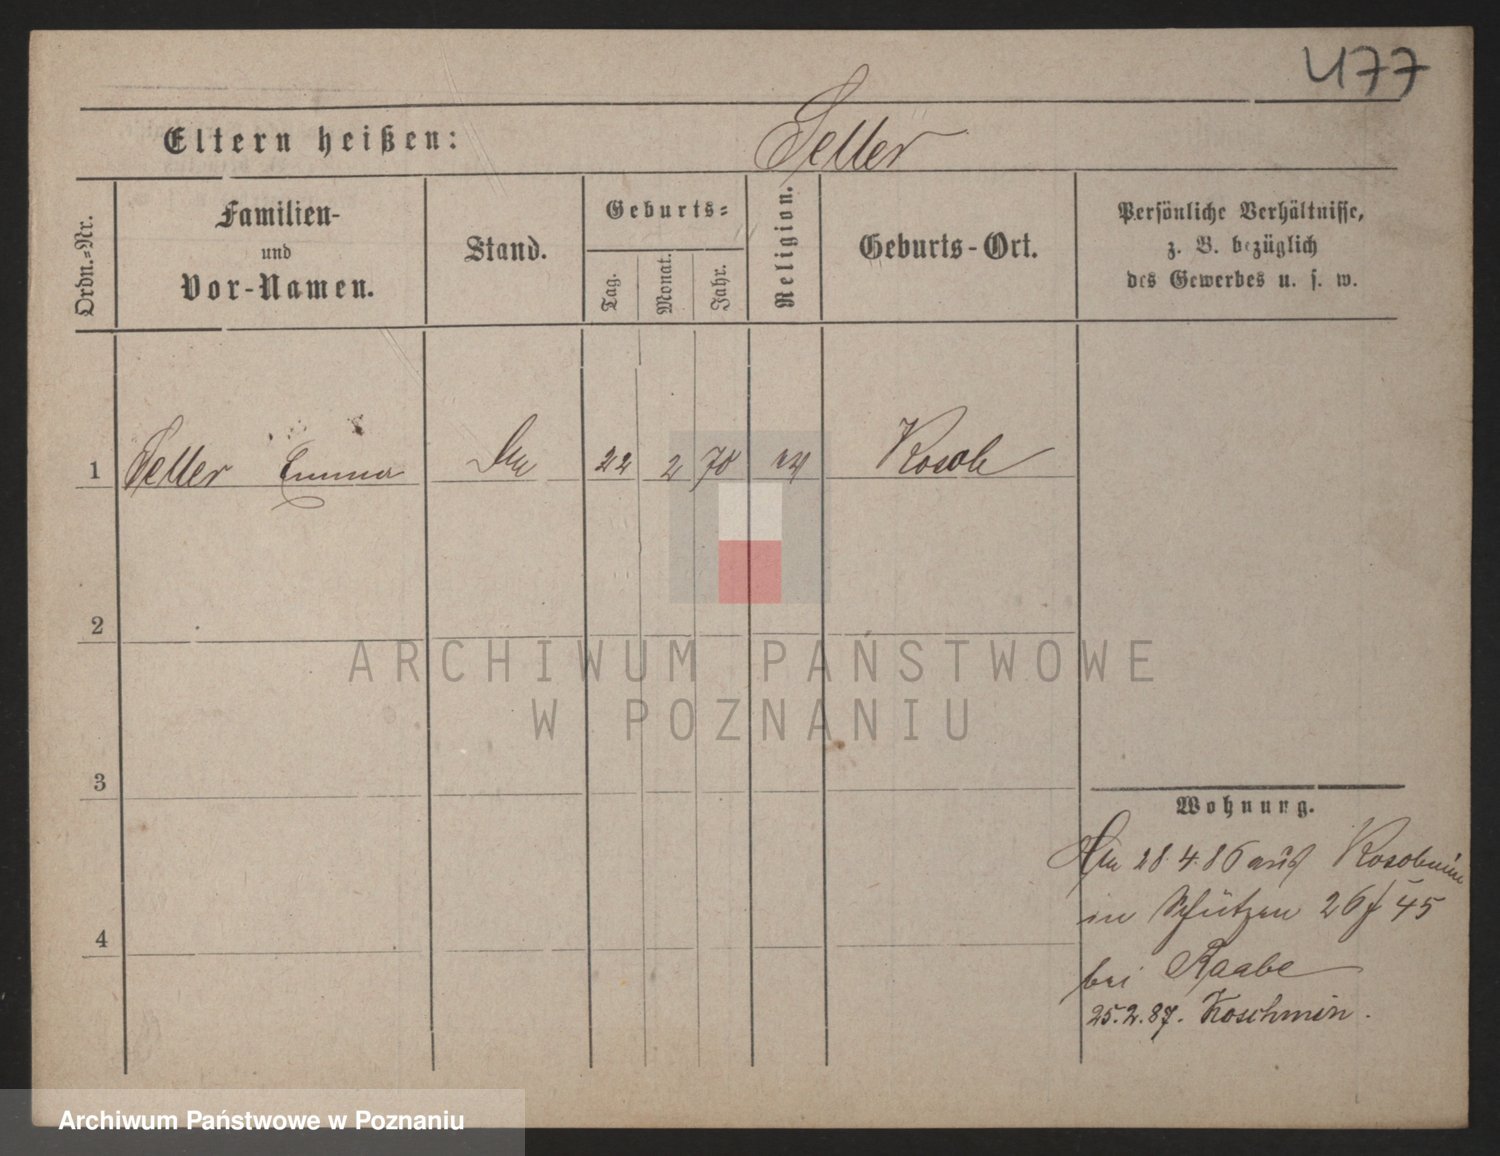 477
Eltern heißen: Seller
Ordn.-Nr.
Familien-
und
Vor-Namen.
Stand.
Geburts-
Tag.
Monat.
Jahr.
Religion.
Geburts-Ort.
Persönliche Verhältnisse,
z. B. bezüglich
des Gewerbes u. s. w.
1 Seller Emma 22 2 70
2
ARCHIWUM PAŃSTWOWE
W POZNANIU
3
Wohnung.
28.4.86 aus
in Schützen 26/45
4
bei Raabe
25.2.87. Koschmin.
Archiwum Państwowe w Poznaniu